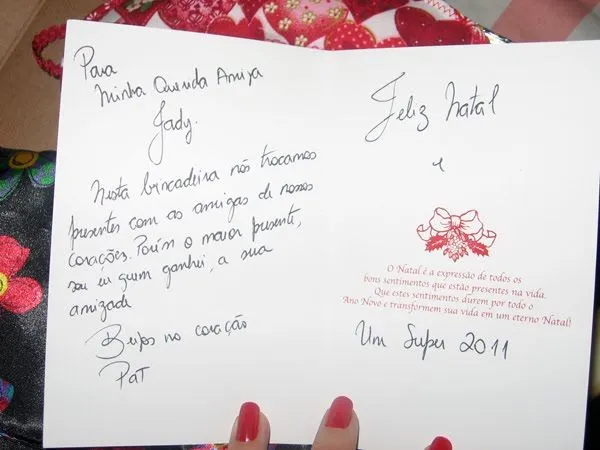 Para
Minha Querida Amiga
Jady.
Nesta brincadeira nós trocamos
presentes com as amigas de nossos
corações. Porém o maior presente,
sou eu quem ganhei, a sua
amizade
Beijos no coração
Pat
Feliz Natal
e
O Natal é a expressão de todos os
bons sentimentos que estão presentes na vida.
Que estes sentimentos durem por todo o
Ano Novo e transformem sua vida em um eterno Natal!
Um Super 2011